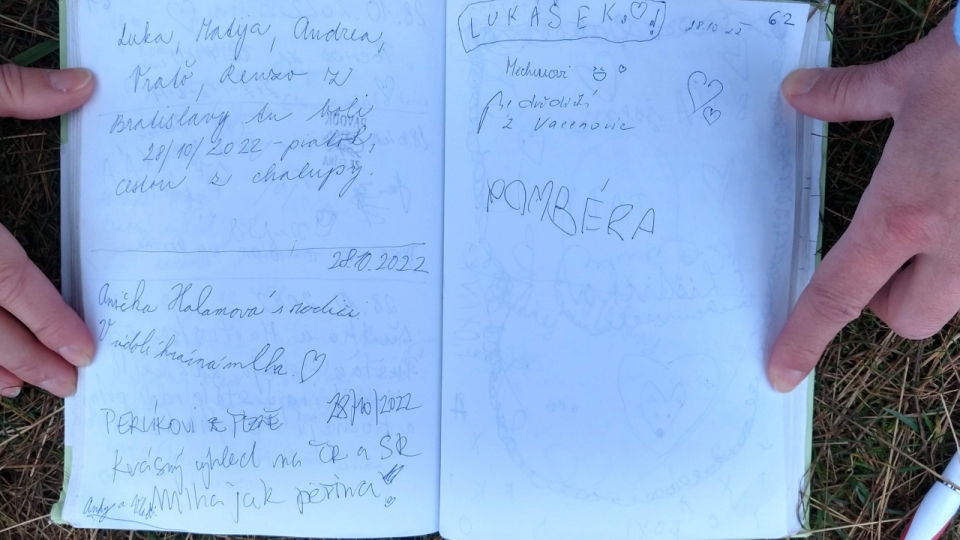 Luka, Matija, Andrea,
Renzo z
Bratislavy tu boli
28/10/2022 -
cestou z chalupy.
28.10.2022
Anička Halamová s rodici
V údolí krásná mlha
PERLÍKOVI Z PLZNĚ 28/10/2022
Krásný výhled na ČR a SR
Mlha jak peřina
Andy a
LUKÁŠEK
28.10.22 62
z Vacenovic
POMBÉRA